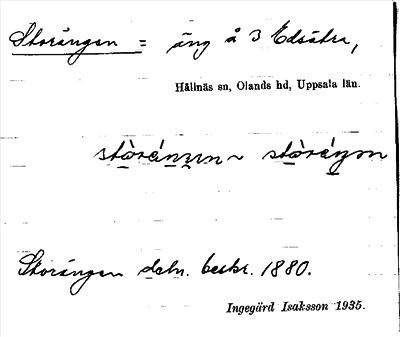 Storängen = äng å 3 Edsätra,
Hållnäs sn, Olands hd, Uppsala län.
Storängen dahr. beskr. 1880.
Ingegärd Isaksson 1935.